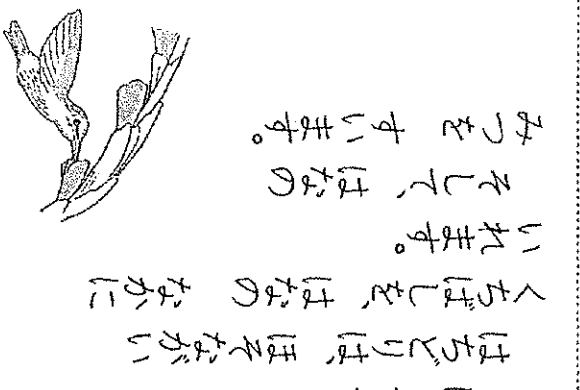 はちどりは、ほそながい
くちばしを、はなの なかに
いれます。
そして、はなの
みつを すいます。